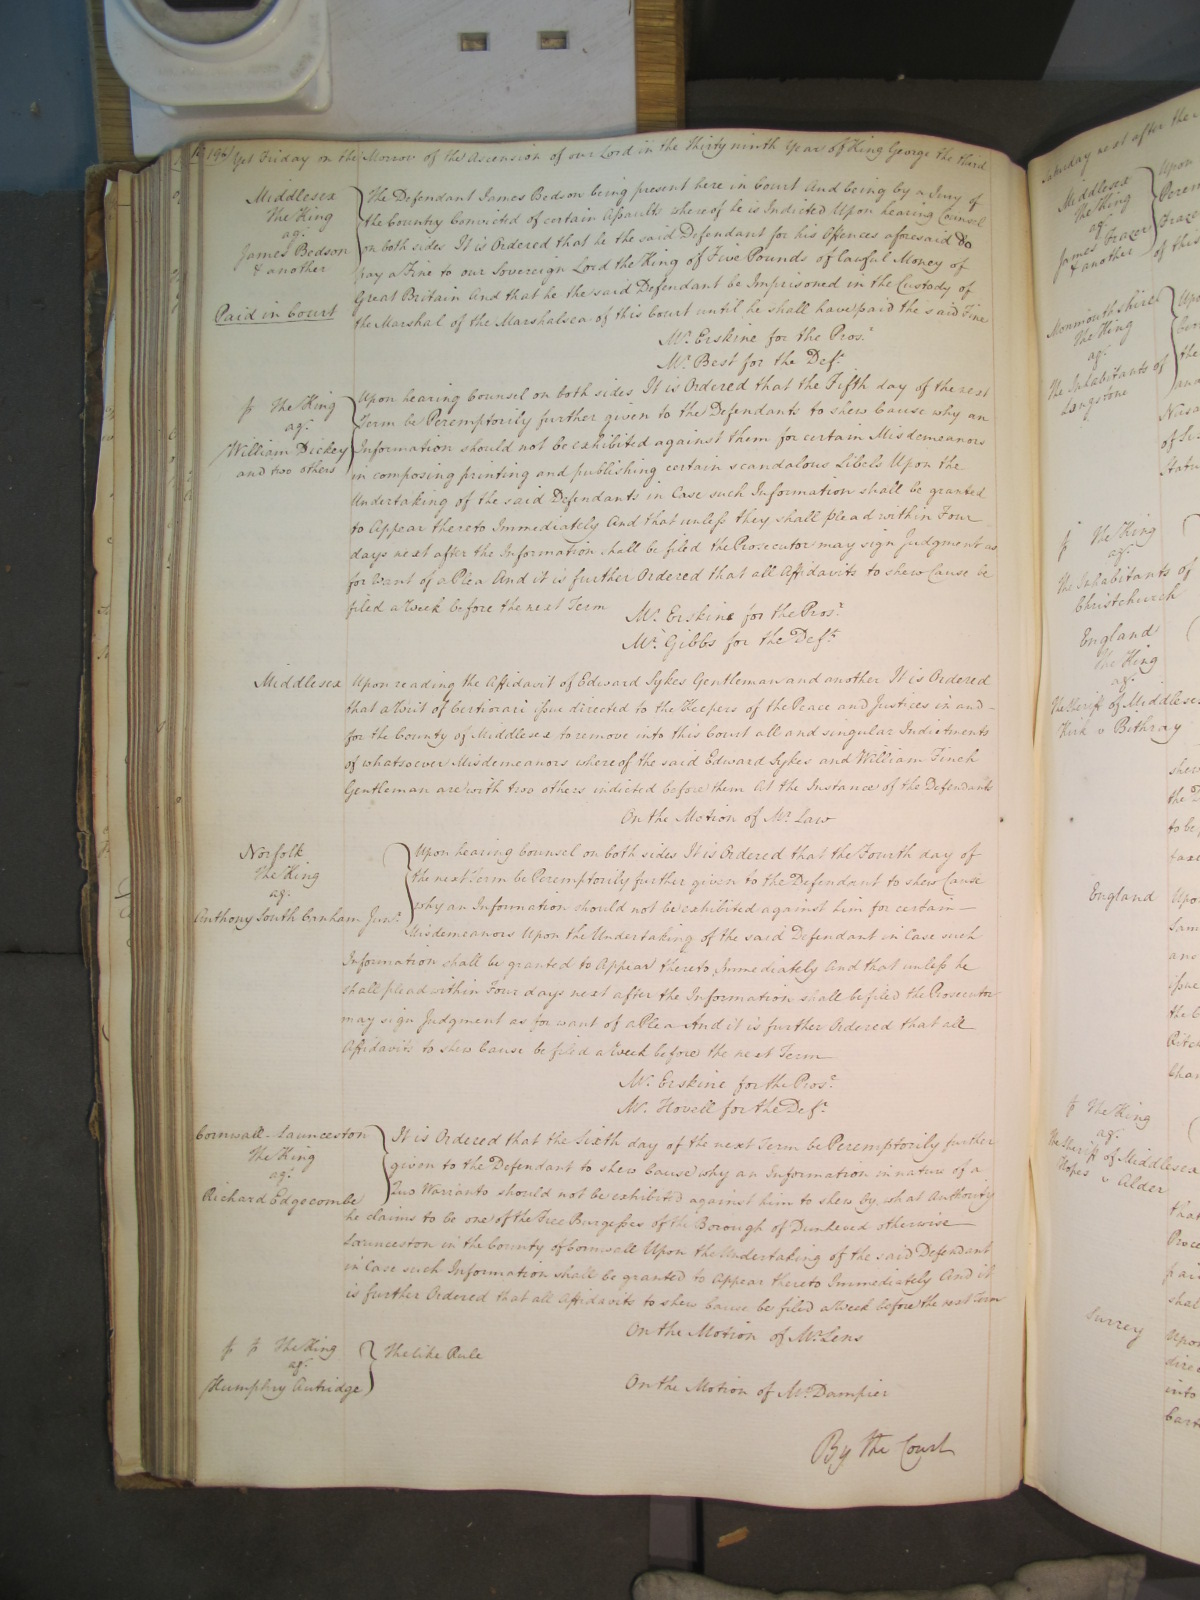 196 Yet Friday on the Morrow of the Ascension of our Lord in the Thirty ninth Year of King George the third
Middlesex
The King
agt.
James Bedson
& another
Paid in Court
The Defendant James Bedson being present here in Court And being by a Jury of
the Country Convicted of certain Assaults whereof he is Indicted Upon hearing Counsel
on both sides It is Ordered that he the said Defendant for his Offences aforesaid do
pay a Fine to our Sovereign Lord the King of Five Pounds of lawful Money of
Great Britain And that he the said Defendant be Imprisoned in the Custody of
the Marshal of the Marshalsea of this Court until he shall have paid the said Fine
Mr. Erskine for the Prosr.
Mr. Best for the Deft.
The King
agt.
William Dickey
and two others
Upon hearing Counsel on both sides It is Ordered that the Fifth day of the next
Term be Peremptorily further given to the Defendants to shew Cause why an
Information should not be exhibited against them for certain Misdemeanors
in composing printing and publishing certain scandalous Libels Upon the
Undertaking of the said Defendants in Case such Information shall be granted
to Appear thereto Immediately And that unless they shall plead within Four
days next after the Information shall be filed the Prosecutor may sign Judgment as
for want of a Plea And it is further Ordered that all Affidavits to shew Cause be
filed a Week before the next Term
Mr. Erskine for the Prosr.
Mr. Gibbs for the Defts.
Middlesex
Upon reading the Affidavit of Edward Sykes Gentleman and another It is Ordered
that a Writ of Certiorari issue directed to the Keepers of the Peace and Justices in and
for the County of Middlesex to remove into this Court all and singular Indictments
of whatsoever Misdemeanors whereof the said Edward Sykes and William Finch
Gentleman are with two others indicted before them At the Instance of the Defendants
On the Motion of Mr. Law
Norfolk
The King
agt.
Anthony South Canham Junr.
Upon hearing Counsel on both sides It is Ordered that the Fourth day of
the next Term be Peremptorily further given to the Defendant to shew Cause
why an Information should not be exhibited against him for certain
Misdemeanors Upon the Undertaking of the said Defendant in Case such
Information shall be granted to Appear thereto Immediately And that unless he
shall plead within Four days next after the Information shall be filed the Prosecutor
may sign Judgment as for want of a Plea And it is further Ordered that all
Affidavits to shew Cause be filed a Week before the next Term
Mr. Erskine for the Prosr.
Mr. Hovell for the Deft.
Cornwall Launceston
The King
agt.
Richard Edgecombe
It is Ordered that the Sixth day of the next Term be Peremptorily further
given to the Defendant to shew Cause why an Information in nature of a
Quo Warranto should not be exhibited against him to shew by what Authority
he claims to be one of the Free Burgesses of the Borough of Dunheved otherwise
Launceston in the County of Cornwall Upon the Undertaking of the said Defendant
in Case such Information shall be granted to Appear thereto Immediately And it
is further Ordered that all Affidavits to shew Cause be filed a Week before the next Term
On the Motion of Mr. Lens
The King
agt.
Humphry Autridge
The like Rule
On the Motion of Mr. Dampier
By the Court
Saturday next after the
Middlesex
The King
agt.
James Frazer
& another
Upon
of this
Monmouthshire
The King
agt.
The Inhabitants of
Langstone
the
The King
agt.
The Inhabitants of
Christchurch
England
The King
agt.
The Sheriff of Middlesex
Kirk v Bethray
shew
to be
England
Upon
issue
The King
agt.
The Sheriff of Middlesex
Hopes v Alder
that
Surrey
Upon
into